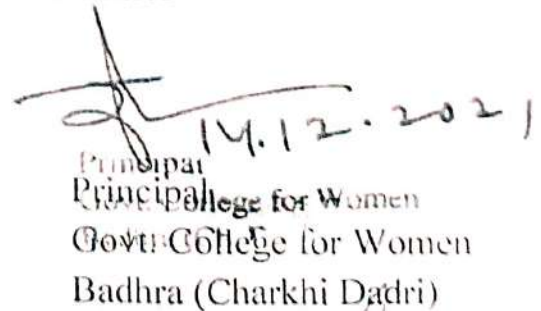 14.12.2021
Principal
Principal
Govt. College for Women
Govt. College for Women
Badhra (Charkhi Dadri)